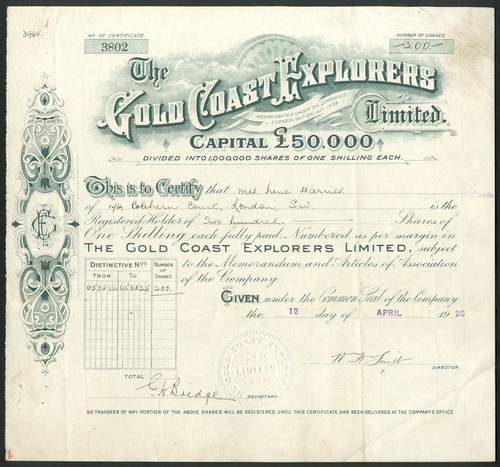 3965.
Nº OF CERTIFICATE
3802
NUMBER OF SHARES.
200
The
GOLD COAST EXPLORERS
INCORPORATED UNDER THE COMPANIES
(CONSOLIDATION) ACT 1908
Limited.
CAPITAL £50,000
DIVIDED INTO 1,000,000 SHARES OF ONE SHILLING EACH.
This is to Certify that Mrs Irene Harries
of Colehern Court, London, S.W. is the
Registered Holder of Two hundred Shares of
One Shilling each fully paid Numbered as per margin in
THE GOLD COAST EXPLORERS LIMITED, subject
to the Memorandum and Articles of Association
of the Company.
DISTINCTIVE Nos
NUMBER OF SHARES
FROM TO
653626 653825 200
GIVEN under the Common Seal of the Company
the 12 day of APRIL 1920
GOLD COAST EXPLORERS
LIMITED
TOTAL
DIRECTOR.
G. H. Bredge
SECRETARY.
NO TRANSFER OF ANY PORTION OF THE ABOVE SHARES WILL BE REGISTERED UNTIL THIS CERTIFICATE HAS BEEN DELIVERED AT THE COMPANY'S OFFICE.